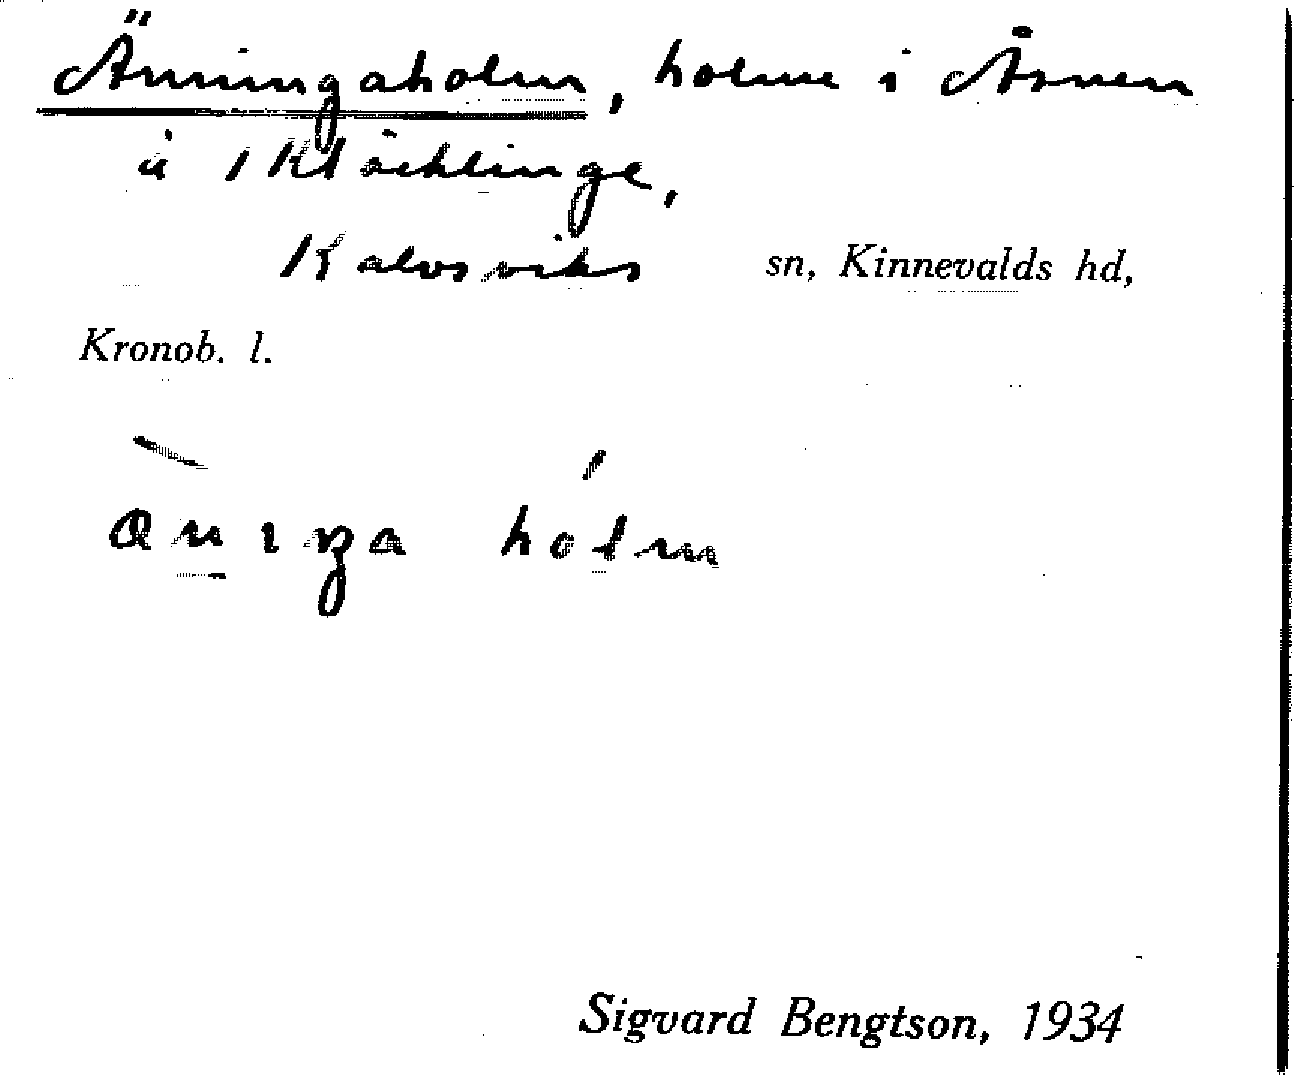 Änningaholm, holme i Åsnen
å Klöcklinge,
Kalvsviks sn, Kinnevalds hd,
Kronob. l.
holm
Sigvard Bengtson, 1934